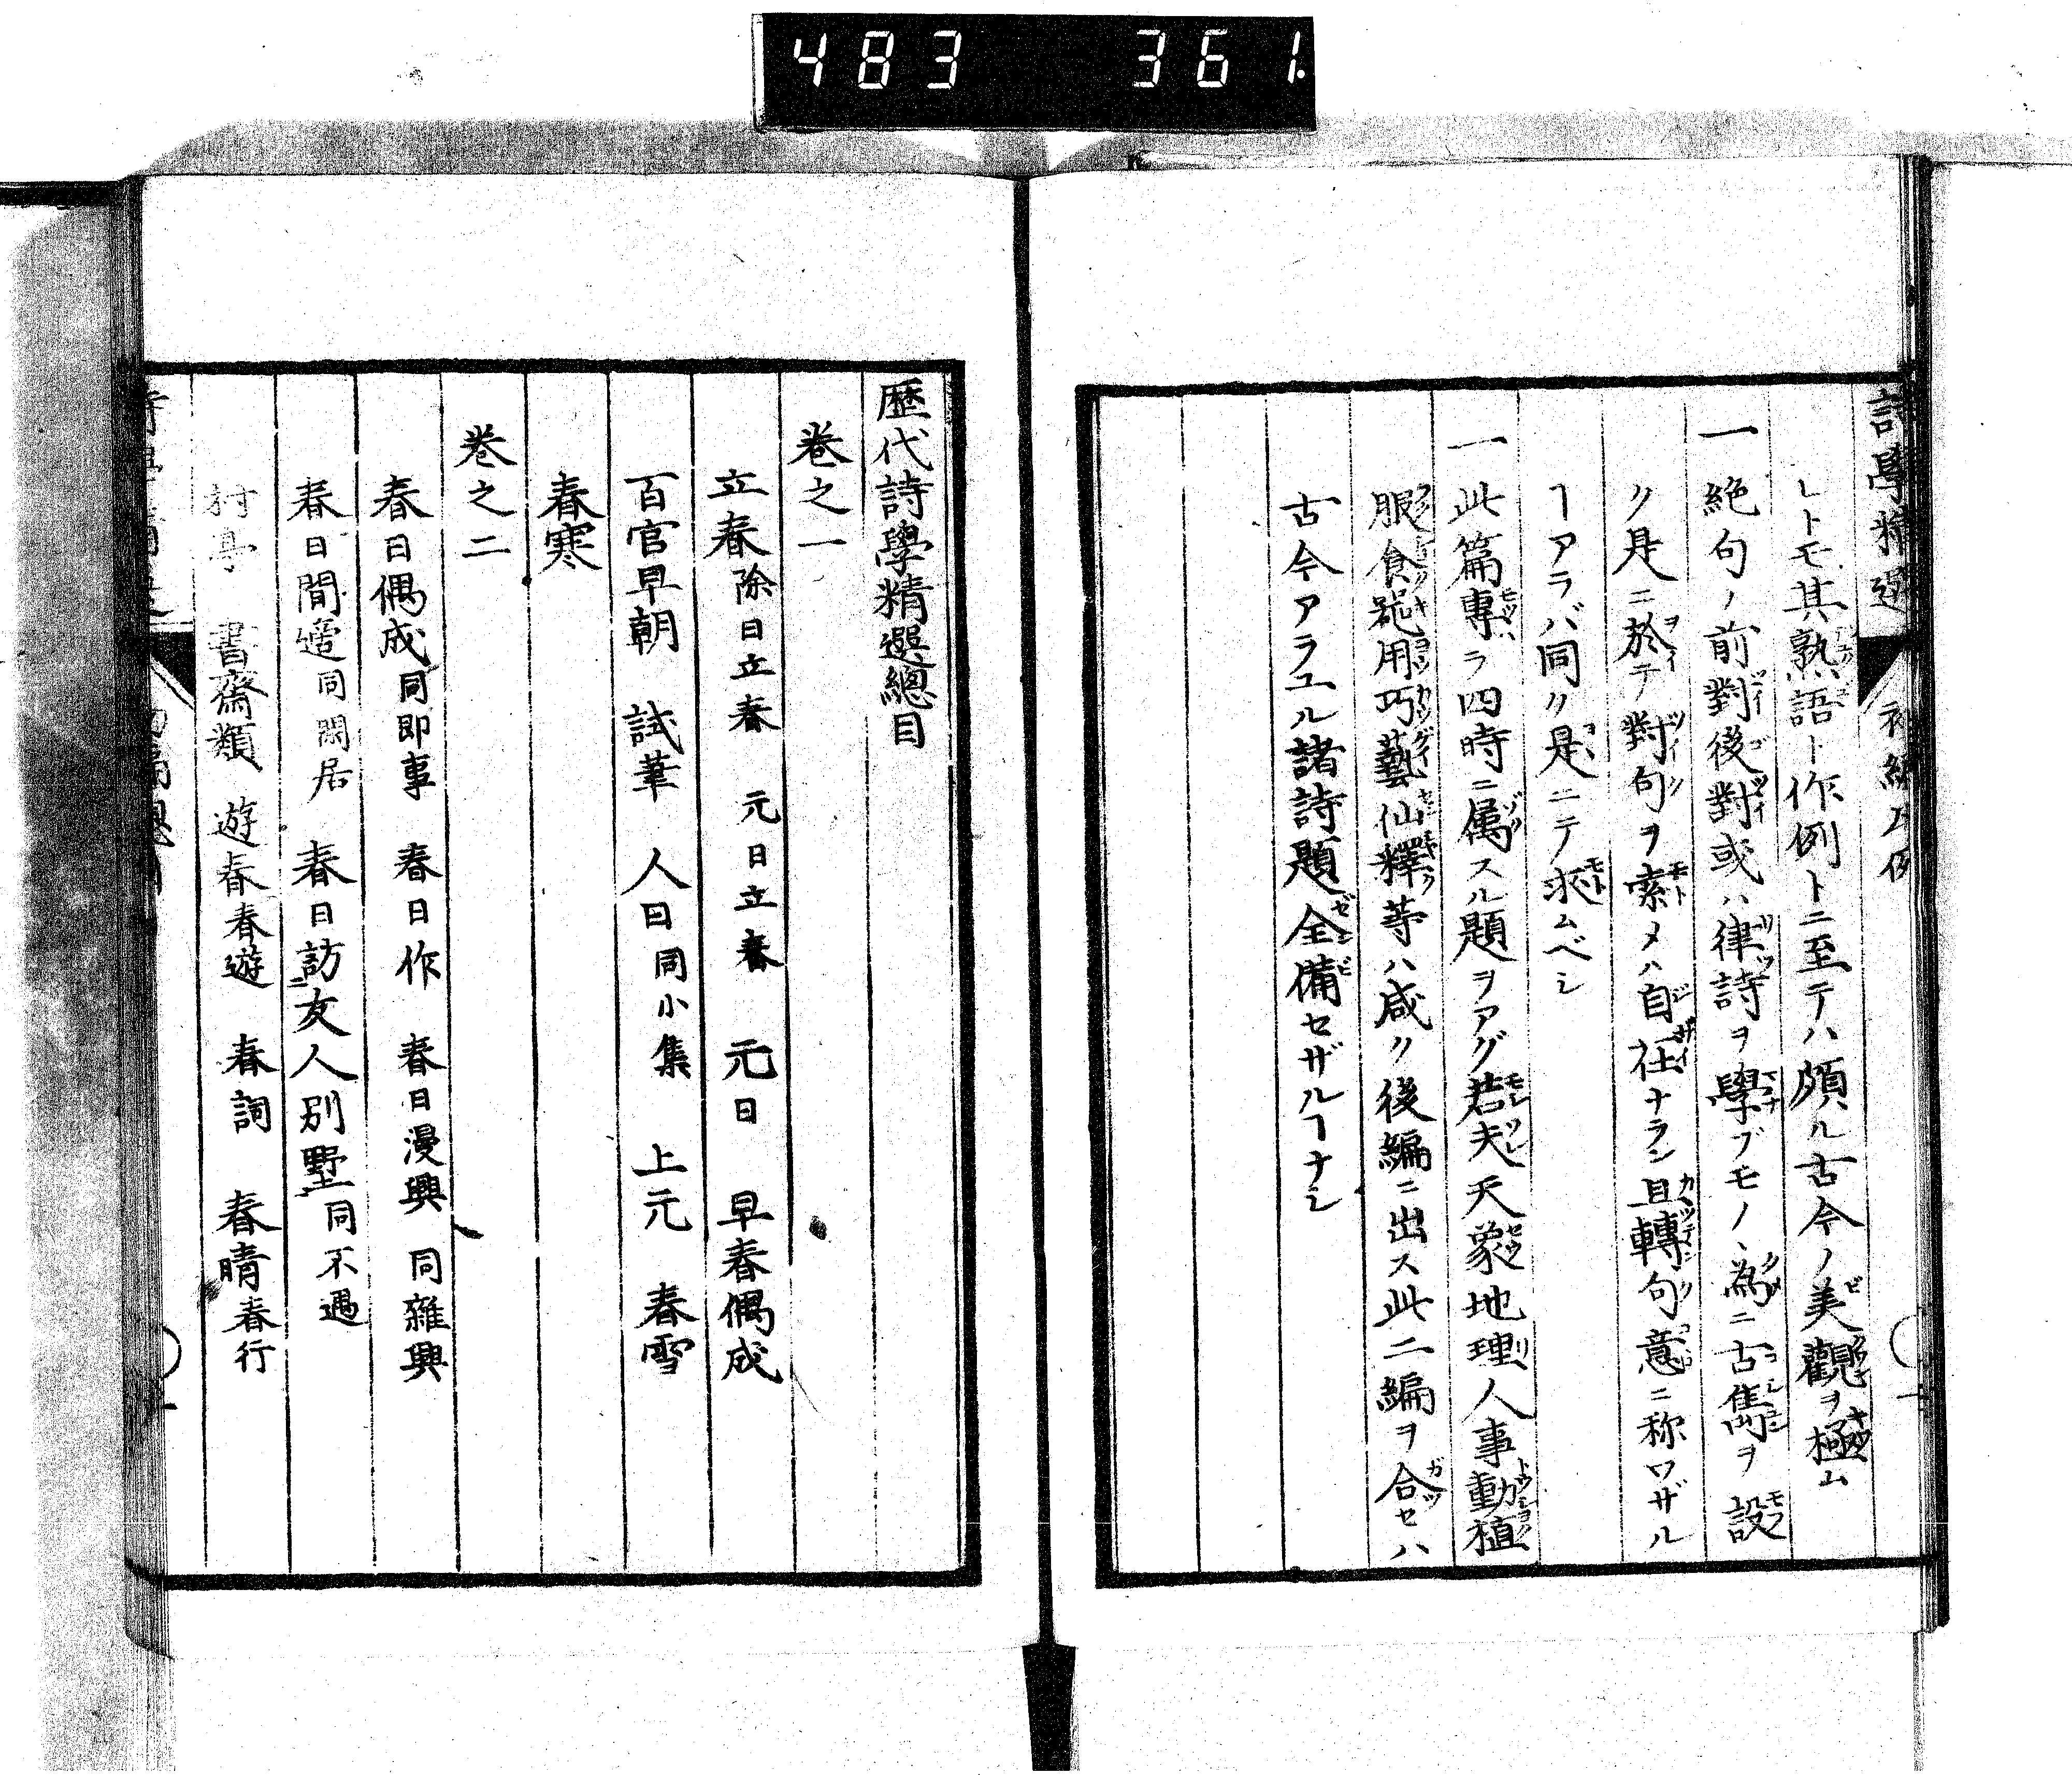 483 361.
詩學精選 初編凡例
レトモ其熟語ト作例トニ至テハ頗ル古今ノ美觀ヲ極ム
一絶句ノ前對後對或ハ律詩ヲ學ブモノヽ為ニ古雋ヲ設
ク是ニ於テ對句ヲ索メハ自在ナラン且轉句意ニ称ワザル
ヿアラバ同ク是ニテ求ムベシ
一此篇專ラ四時ニ属スル題ヲアグ若夫天象地理人事動植
服食器用巧藝仙釋等ハ咸ク後編ニ出ス此二編ヲ合セハ
古今アラユル諸詩題全備セザルヿナシ
歴代詩學精選總目
巻之一
立春 除日立春 元日立春 元日 早春偶成
百官早朝 試筆 人日 同小集 上元 春雪
春寒
巻之二
春日偶成 同即事 春日作 春日漫興 同雜興
春日間遊 同閑居 春日訪友人別墅 同不遇
村亭 書齋類 遊春 春遊 春詞 春晴 春行